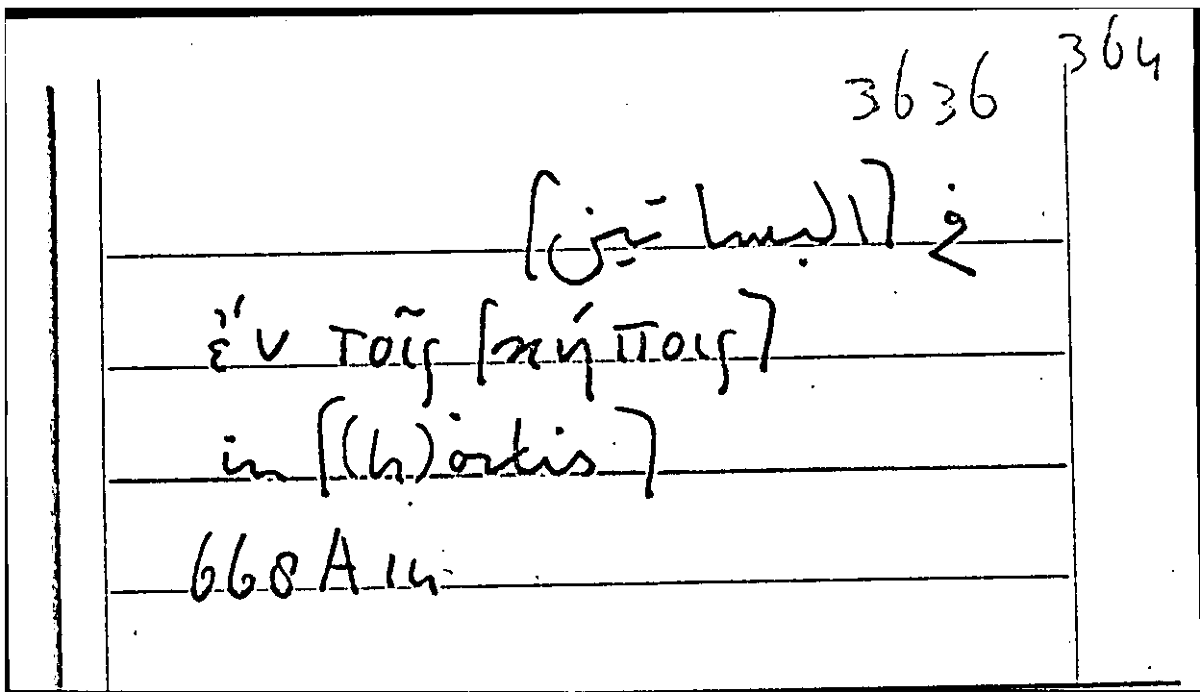 364
3636
في [البساتين]
ἐν τοῖς [κήποις]
in [(h)ortis]
668A14